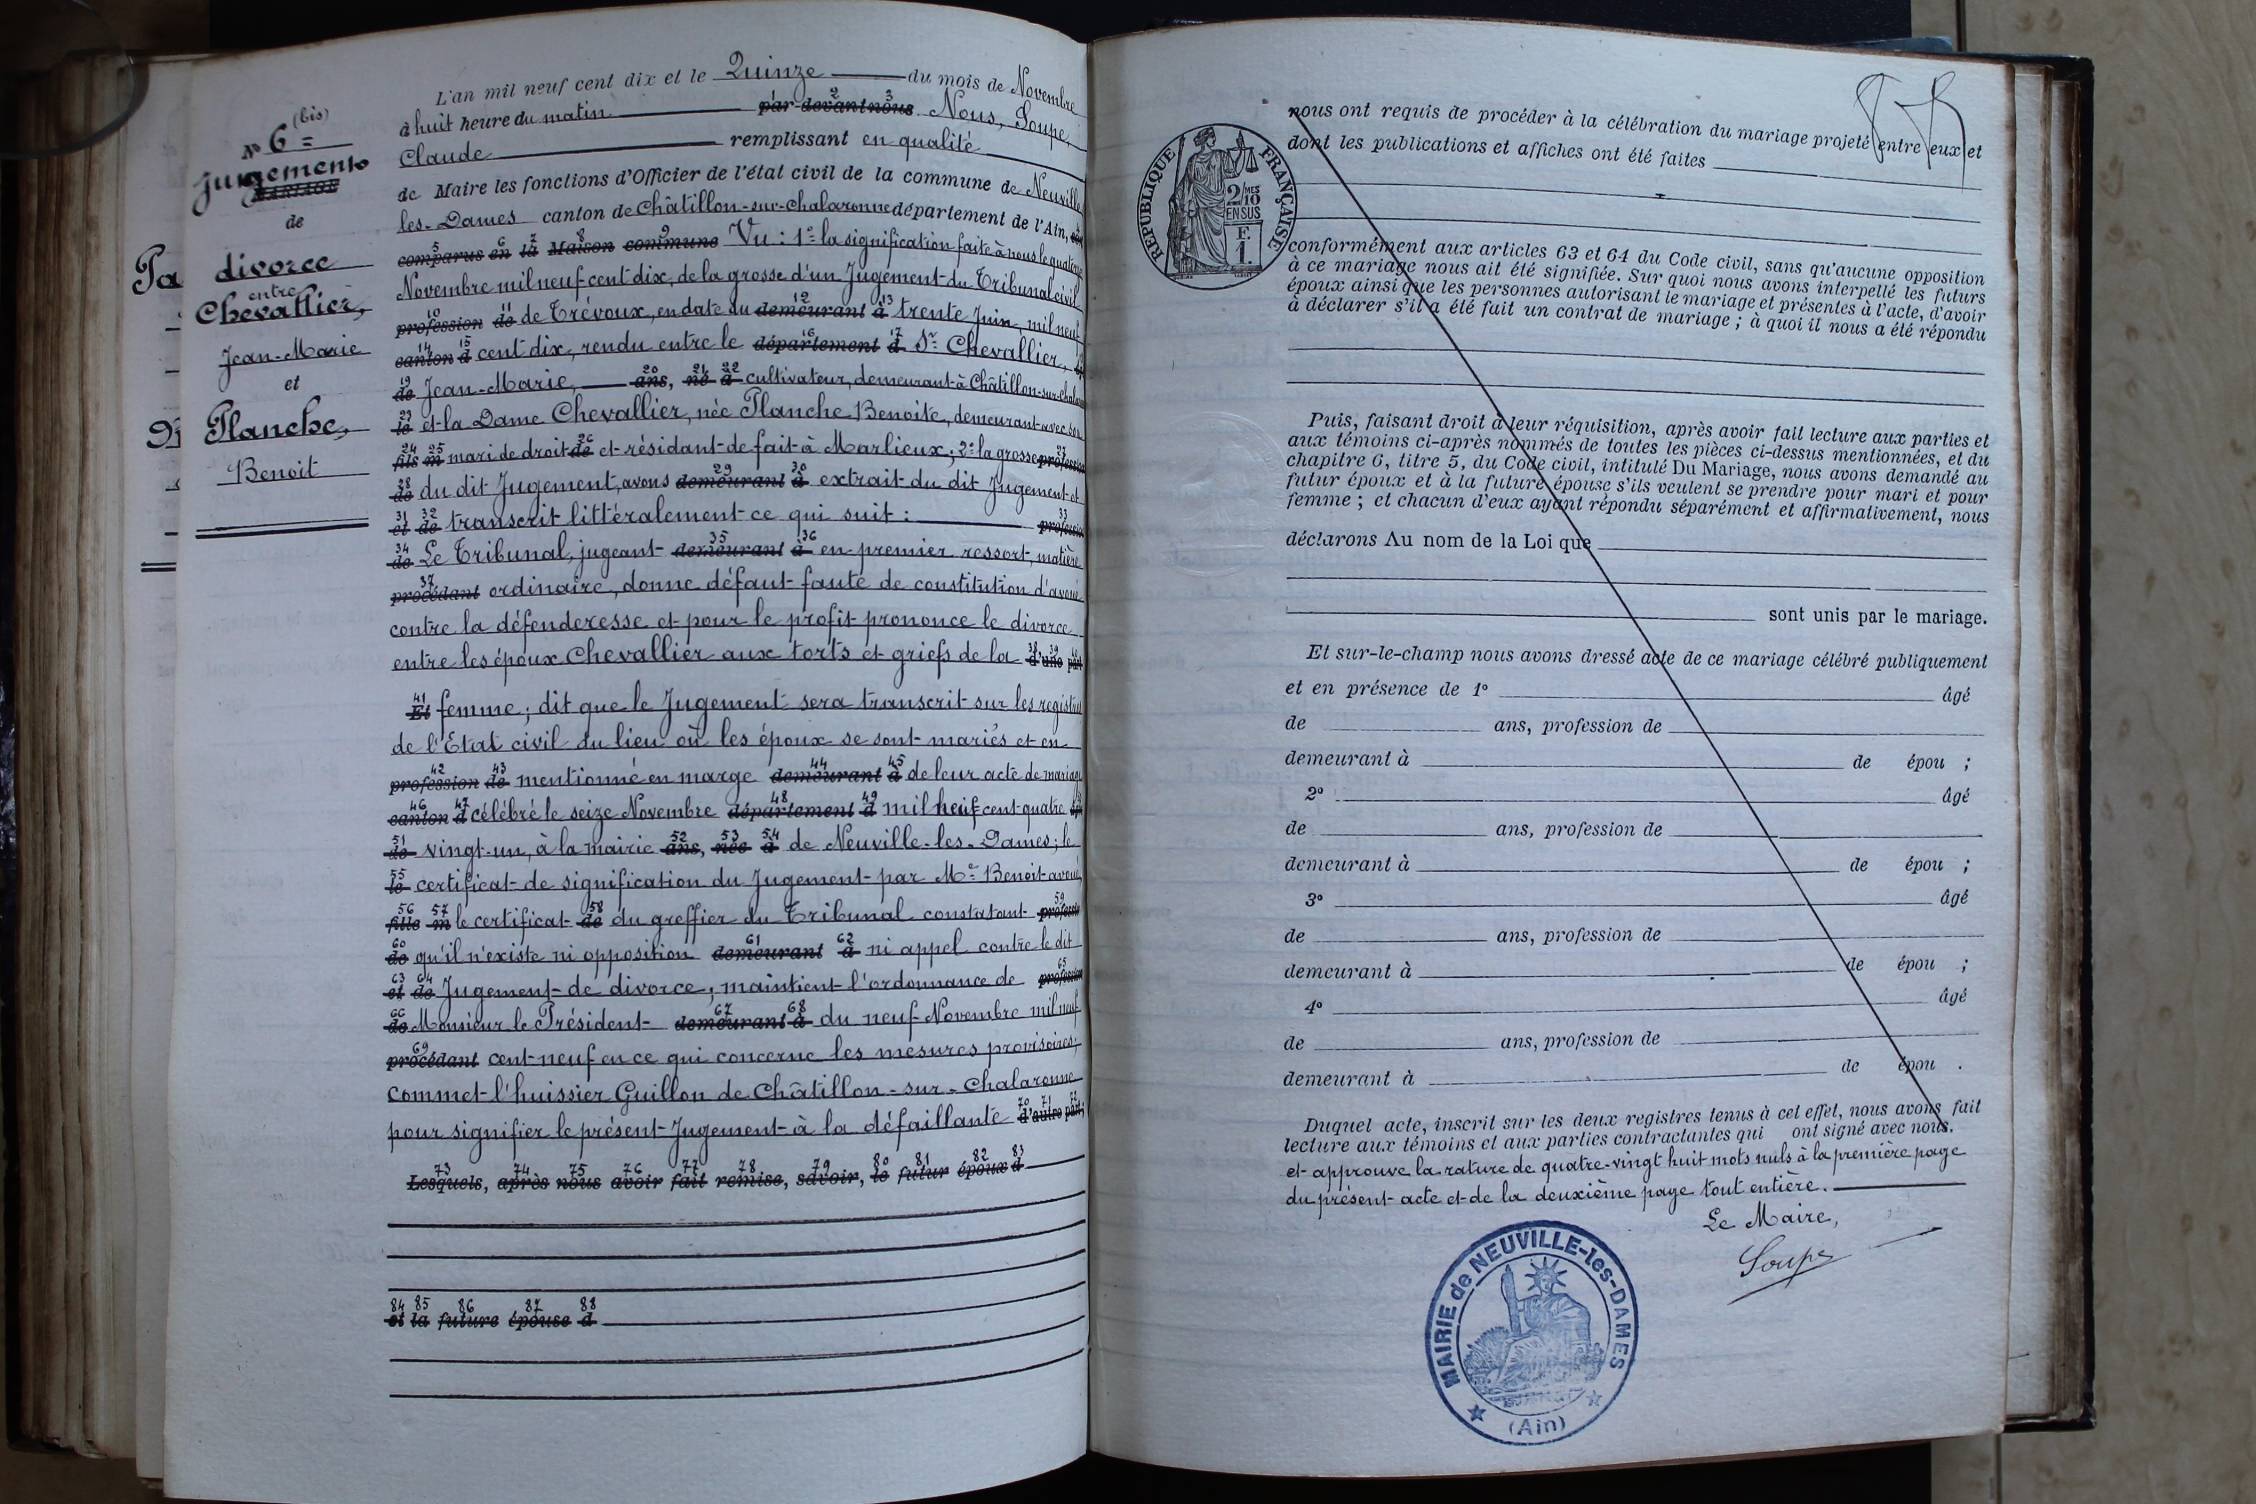 N° 6 = (bis)
jugement
MARIAGE
de
divorce
entre
Chevallier,
Jean-Marie
et
Planche,
Benoit
L'an mil neuf cent dix et le Quinze du mois de Novembre
à huit heure du matin par devant nous Nous, Soupe,
Claude remplissant en qualité
de Maire les fonctions d'Officier de l'état civil de la commune de Neuville
les-Dames canton de Châtillon-sur-Chalaronne département de l'Ain,
comparus en la Maison commune Vu : 1° la signification faite à nous le quatorze
Novembre mil neuf cent dix, de la grosse d'un Jugement du Tribunal civil
profession de de Trévoux, en date du demeurant à trente Juin mil neuf
canton d cent dix, rendu entre le département d Sr Chevallier,
de Jean-Marie, ans, né à cultivateur, demeurant à Châtillon-sur-Chalar
le et la Dame Chevallier, née Planche Benoite, demeurant avec son
fils m mari de droit de et résidant de fait à Marlieux; 2° la grosse profession
de du dit Jugement, avons demeurant à extrait du dit Jugement et
et de transcrit littéralement ce qui suit : profession
de Le Tribunal, jugeant demeurant à en premier ressort, matière
procédant ordinaire, donne défaut faute de constitution d'avoué
contre la défenderesse et pour le profit prononce le divorce
entre les époux Chevallier aux torts et griefs de la d'une part
Et femme; dit que le Jugement sera transcrit sur les registres
de l'Etat civil du lieu où les époux se sont mariés et en
profession de mentionné en marge demeurant à de leur acte de mariage
canton d célébré le seize Novembre département d mil heuif cent quatre
de vingt-un, à la mairie ans, née à de Neuville-les-Dames; le
le certificat de signification du Jugement par Me Benoit avoué,
fille m le certificat de du greffier du Tribunal constatant profession
de qu'il n'existe ni opposition demeurant à ni appel contre le dit
et de Jugement de divorce; maintient l'ordonnance de profession
de Monsieur le Président demeurant à du neuf Novembre mil neuf
procédant cent neuf en ce qui concerne les mesures provisoires;
commet l'huissier Guillon de Châtillon-sur-Chalaronne
pour signifier le présent Jugement à la défaillante d'autre part;
Lesquels, après nous avoir fait remise, savoir, le futur époux d
et la future épouse d
RÉPUBLIQUE FRANÇAISE
2/10 MES
EN SUS
F.
1.
nous ont requis de procéder à la célébration du mariage projeté entre eux et
dont les publications et affiches ont été faites
conformément aux articles 63 et 64 du Code civil, sans qu'aucune opposition
à ce mariage nous ait été signifiée. Sur quoi nous avons interpellé les futurs
époux ainsi que les personnes autorisant le mariage et présentes à l'acte, d'avoir
à déclarer s'il a été fait un contrat de mariage ; à quoi il nous a été répondu
Puis, faisant droit à leur réquisition, après avoir fait lecture aux parties et
aux témoins ci-après nommés de toutes les pièces ci-dessus mentionnées, et du
chapitre 6, titre 5, du Code civil, intitulé Du Mariage, nous avons demandé au
futur époux et à la future épouse s'ils veulent se prendre pour mari et pour
femme ; et chacun d'eux ayant répondu séparément et affirmativement, nous
déclarons Au nom de la Loi que
sont unis par le mariage.
Et sur-le-champ nous avons dressé acte de ce mariage célébré publiquement
et en présence de 1° âgé
de ans, profession de
demeurant à de épou ;
2° âgé
de ans, profession de
demeurant à de épou ;
3° âgé
de ans, profession de
demeurant à de épou ;
4° âgé
de ans, profession de
demeurant à de épou .
Duquel acte, inscrit sur les deux registres tenus à cet effet, nous avons fait
lecture aux témoins et aux parties contractantes qui ont signé avec nous.
et approuve la rature de quatre-vingt huit mots nuls à la première page
du présent acte et de la deuxième page tout entière.
Le Maire,
Soupe
MAIRIE de NEUVILLE-les-DAMES
(Ain)